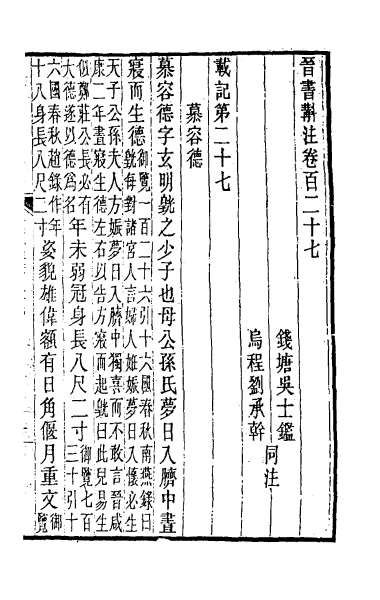 晉書斠注卷百二十七
錢塘吳士鑑
烏程劉承幹
同注
載記第二十七
慕容德
慕容德字玄明皝之少子也母公孫氏夢日入臍中晝
寢而生德御覽一百二十六引十六國春秋南燕錄曰
皝每對諸宮人言婦人姙娠夢日入懷必生
天子公孫夫人方娠夢日入臍中獨喜而不敢言晉咸
康二年晝寢生德左右以告方寢而起皝曰此兒易生
似鄭莊公長必有
大德遂以德爲名年未弱冠身長八尺二寸御覽七百
三十引十
六國春秋趙錄作年
十八身長八尺二寸姿貌雄偉額有日角偃月重文御
覽